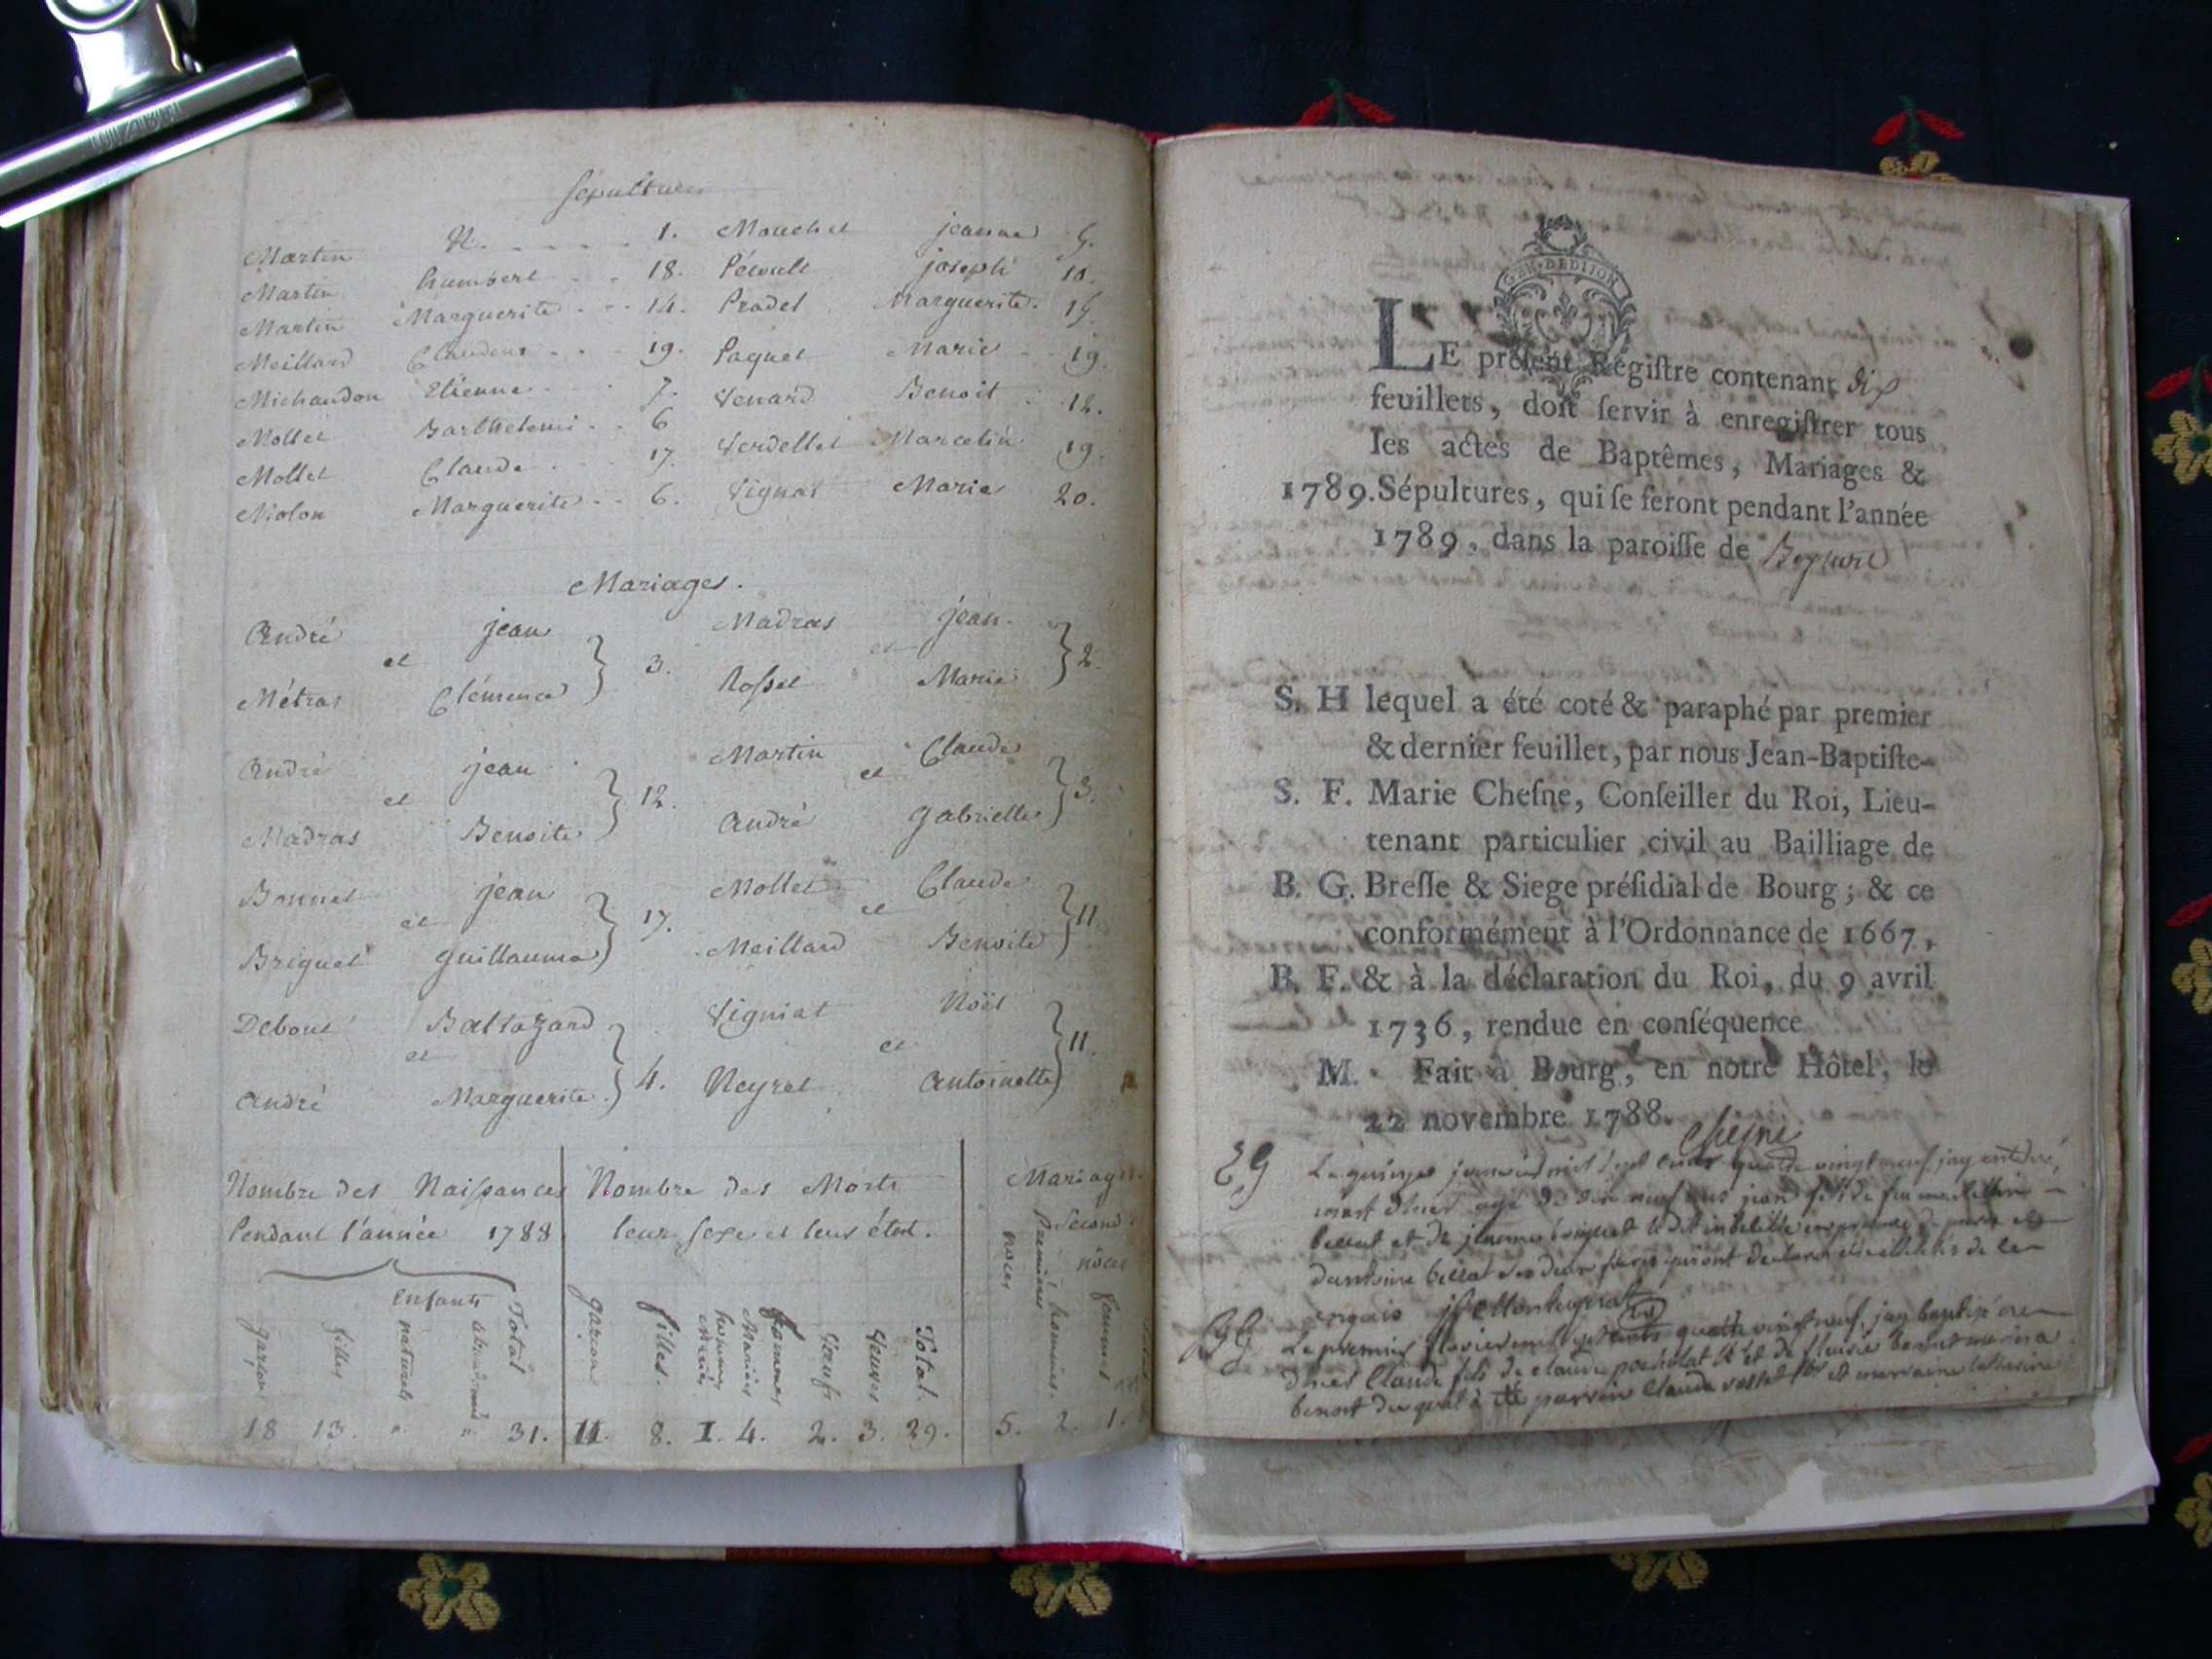 Sépultures
Martin N. 1.
Martin humbert 18.
Martin Marguerite 14.
Meillard Claudine 19.
Michaudon Etienne 7.
Mollet Barthelemi 6
Mollet Claude 17.
Molon Marguerite 6.
Mouchet jeanne 5.
joseph 10.
Pradel Marguerite 15.
Paquet Marie 19.
Venard Benoit 12.
Verdellet Marcelin 19.
Vignat Marie 20.
Mariages.
André jean
et } 3.
Métras Clémence
André jean
et } 12.
Madras Benoite
Bonnet jean
et } 17.
Briquet guillauma
Debout Baltazard
et } 4.
André Marguerite
Madras jean.
et } 2.
Rosset Marie
Martin Claude
et } 3.
André gabrielle
Mollet Claude
et } 11.
Meillard Benoite
Vigniat Noël
et } 11.
Neyret Antoinette
Nombre des Naissances
Pendant l'année 1788
Enfants
garçons filles naturels abandonnés Total
18 13. " " 31.
Nombre des Morts
leur sexe et leur état.
garçons filles. hommes Mariés femmes Mariées Veufs Veuves Total.
11. 8. 1. 4. 2. 3. 29.
Mariages
Premières noces Secondes nôces
hommes. femmes
5. 2. 1.
GEN. DEDITION
LE préſent Régiſtre contenant dix
feuillets, doit ſervir à enregiſtrer tous
les actes de Baptêmes, Mariages &
1789. Sépultures, qui ſe feront pendant l'année
1789, dans la paroiſſe de
S. H lequel a été coté & paraphé par premier
& dernier feuillet, par nous Jean-Baptiſte-
S. F. Marie Cheſne, Conſeiller du Roi, Lieu-
tenant particulier civil au Bailliage de
B. G. Breſſe & Siege préſidial de Bourg ; & ce
conformément à l'Ordonnance de 1667,
B. F. & à la déclaration du Roi, du 9 avril
1736, rendue en conſéquence.
M. Fait à Bourg, en notre Hôtel, le
22 novembre 1788.
Chesne
Le quinze janvier mil sept cent quatre vingt neuf jay enterré
mort d'hier agé de dix neuf ans jean fils de feu
et de briquet
bellat ses deux
Le premier fevrier mil sept cents quatre vingt neuf jay baptisé né
d'hier Claude fils de claude et de benoit
benoit duquel à été parrain Claude et marraine